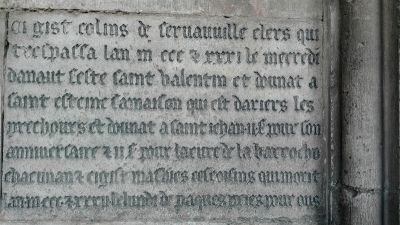 ci gist colins de seruauuille clers qui
trespassa lan m ccc & xxxi le mecredi
dauant feste saint valentin et donnat a
saint esteine sa maison qui est dariers les
prechours et donnat a saint iehan ii f pour son
anniuersaire & ii f pour la cure de la
chacun an & ci gist qui morit
lan m ccc & xxxii le lundi de paques pries pour ous